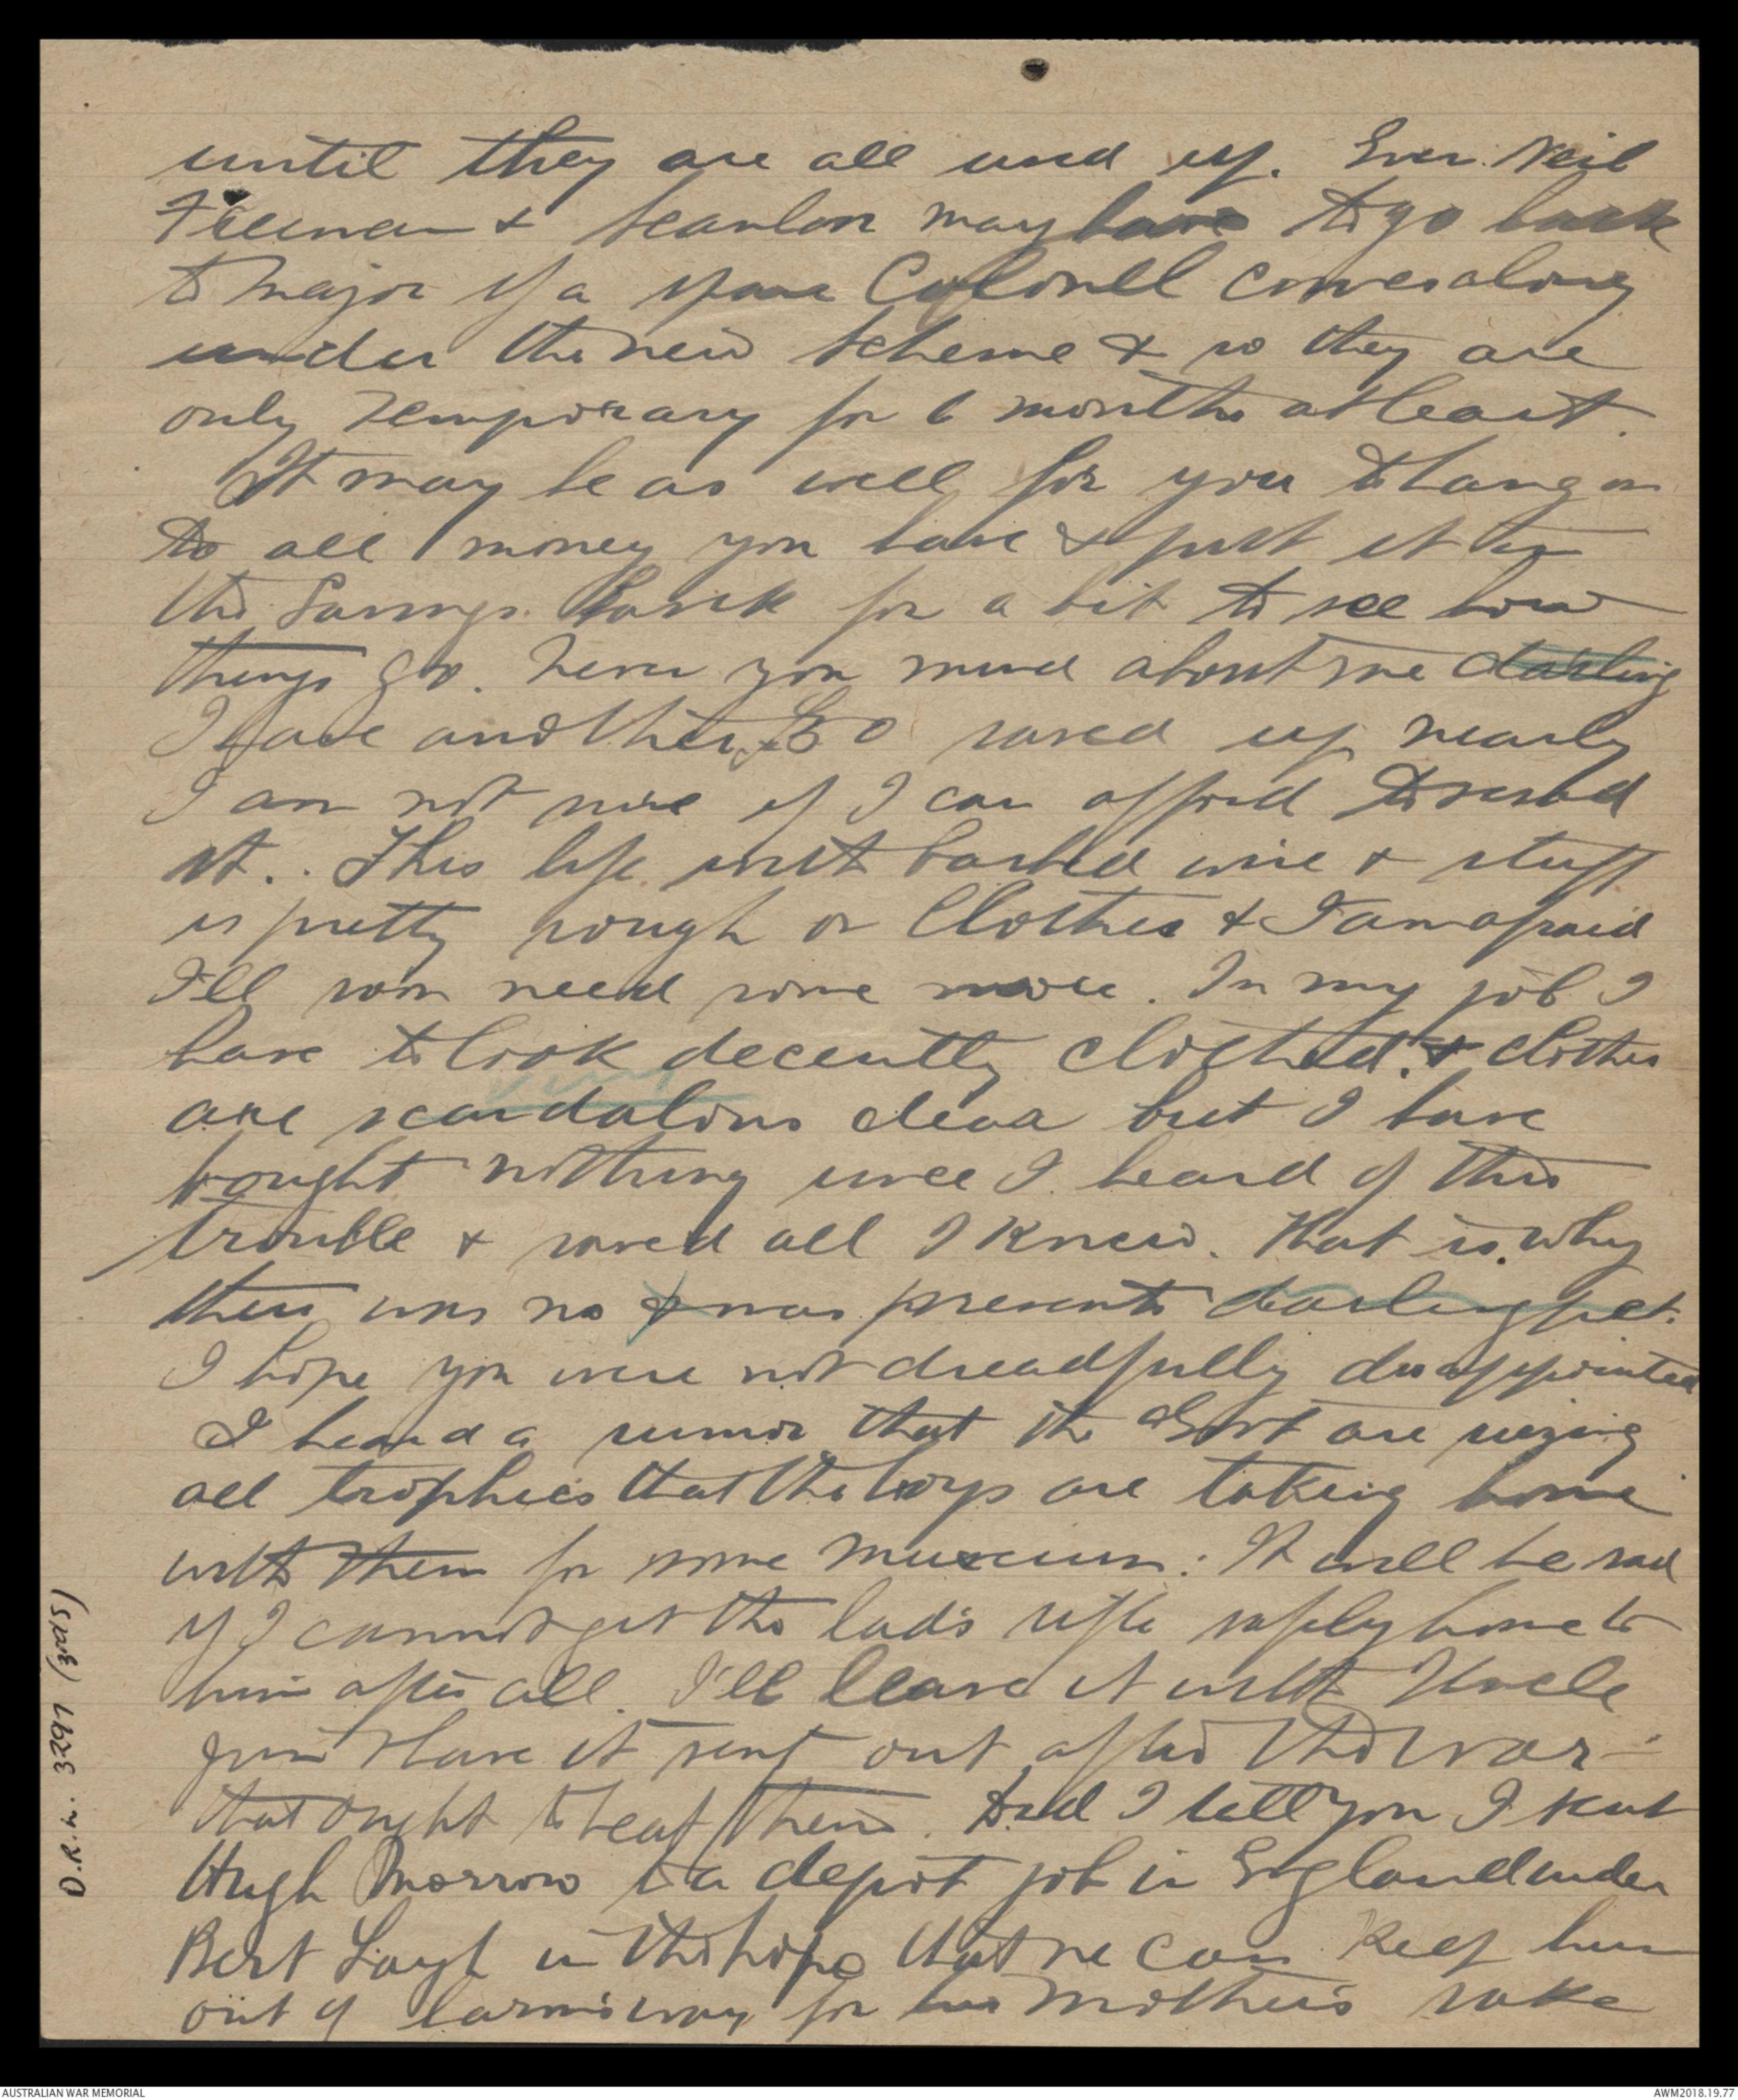 until they are all used up. Even Neil
Freeman & Scanlon may have to go back
to Major if a spare Colonell comes along
under the new scheme & so they are
only temporary for 6 months at least.
It may be as well for you to hang on
to all money you have & put it in
the Savings Bank for a bit to see how
things go. Never you mind about me darling
I have another £50 saved up nearly
I am not sure if I can afford to send
it.. This life with barbed wire & stuff
is pretty rough on Clothes & I am afraid
I'll soon need some more. In my job I
have to look decently clothed. & clothes
are scandalous dear but I have
very
bought nothing since I heard of this
trouble & saved all I knew. That is why
there was no Xmas presents darling pet.
I hope you were not dreadfully disappointed
I heard a rumor that the Govt are seizing
all trophies that the boys are taking home
with them for some museum: It will be sad
if I cannot get the lad's rifle safely home to
him after all. I'll leave it with Uncle
Jim & have it sent out after the war -
that ought to beat them. Did I tell you I sent
Hugh Morrow to a depot job in England under
Bert Layh in the hope that we can keep him
out of harm's way for his mother's sake
D.R.L. 3297 (3rd S)
AUSTRALIAN WAR MEMORIAL
AWM2018.19.77